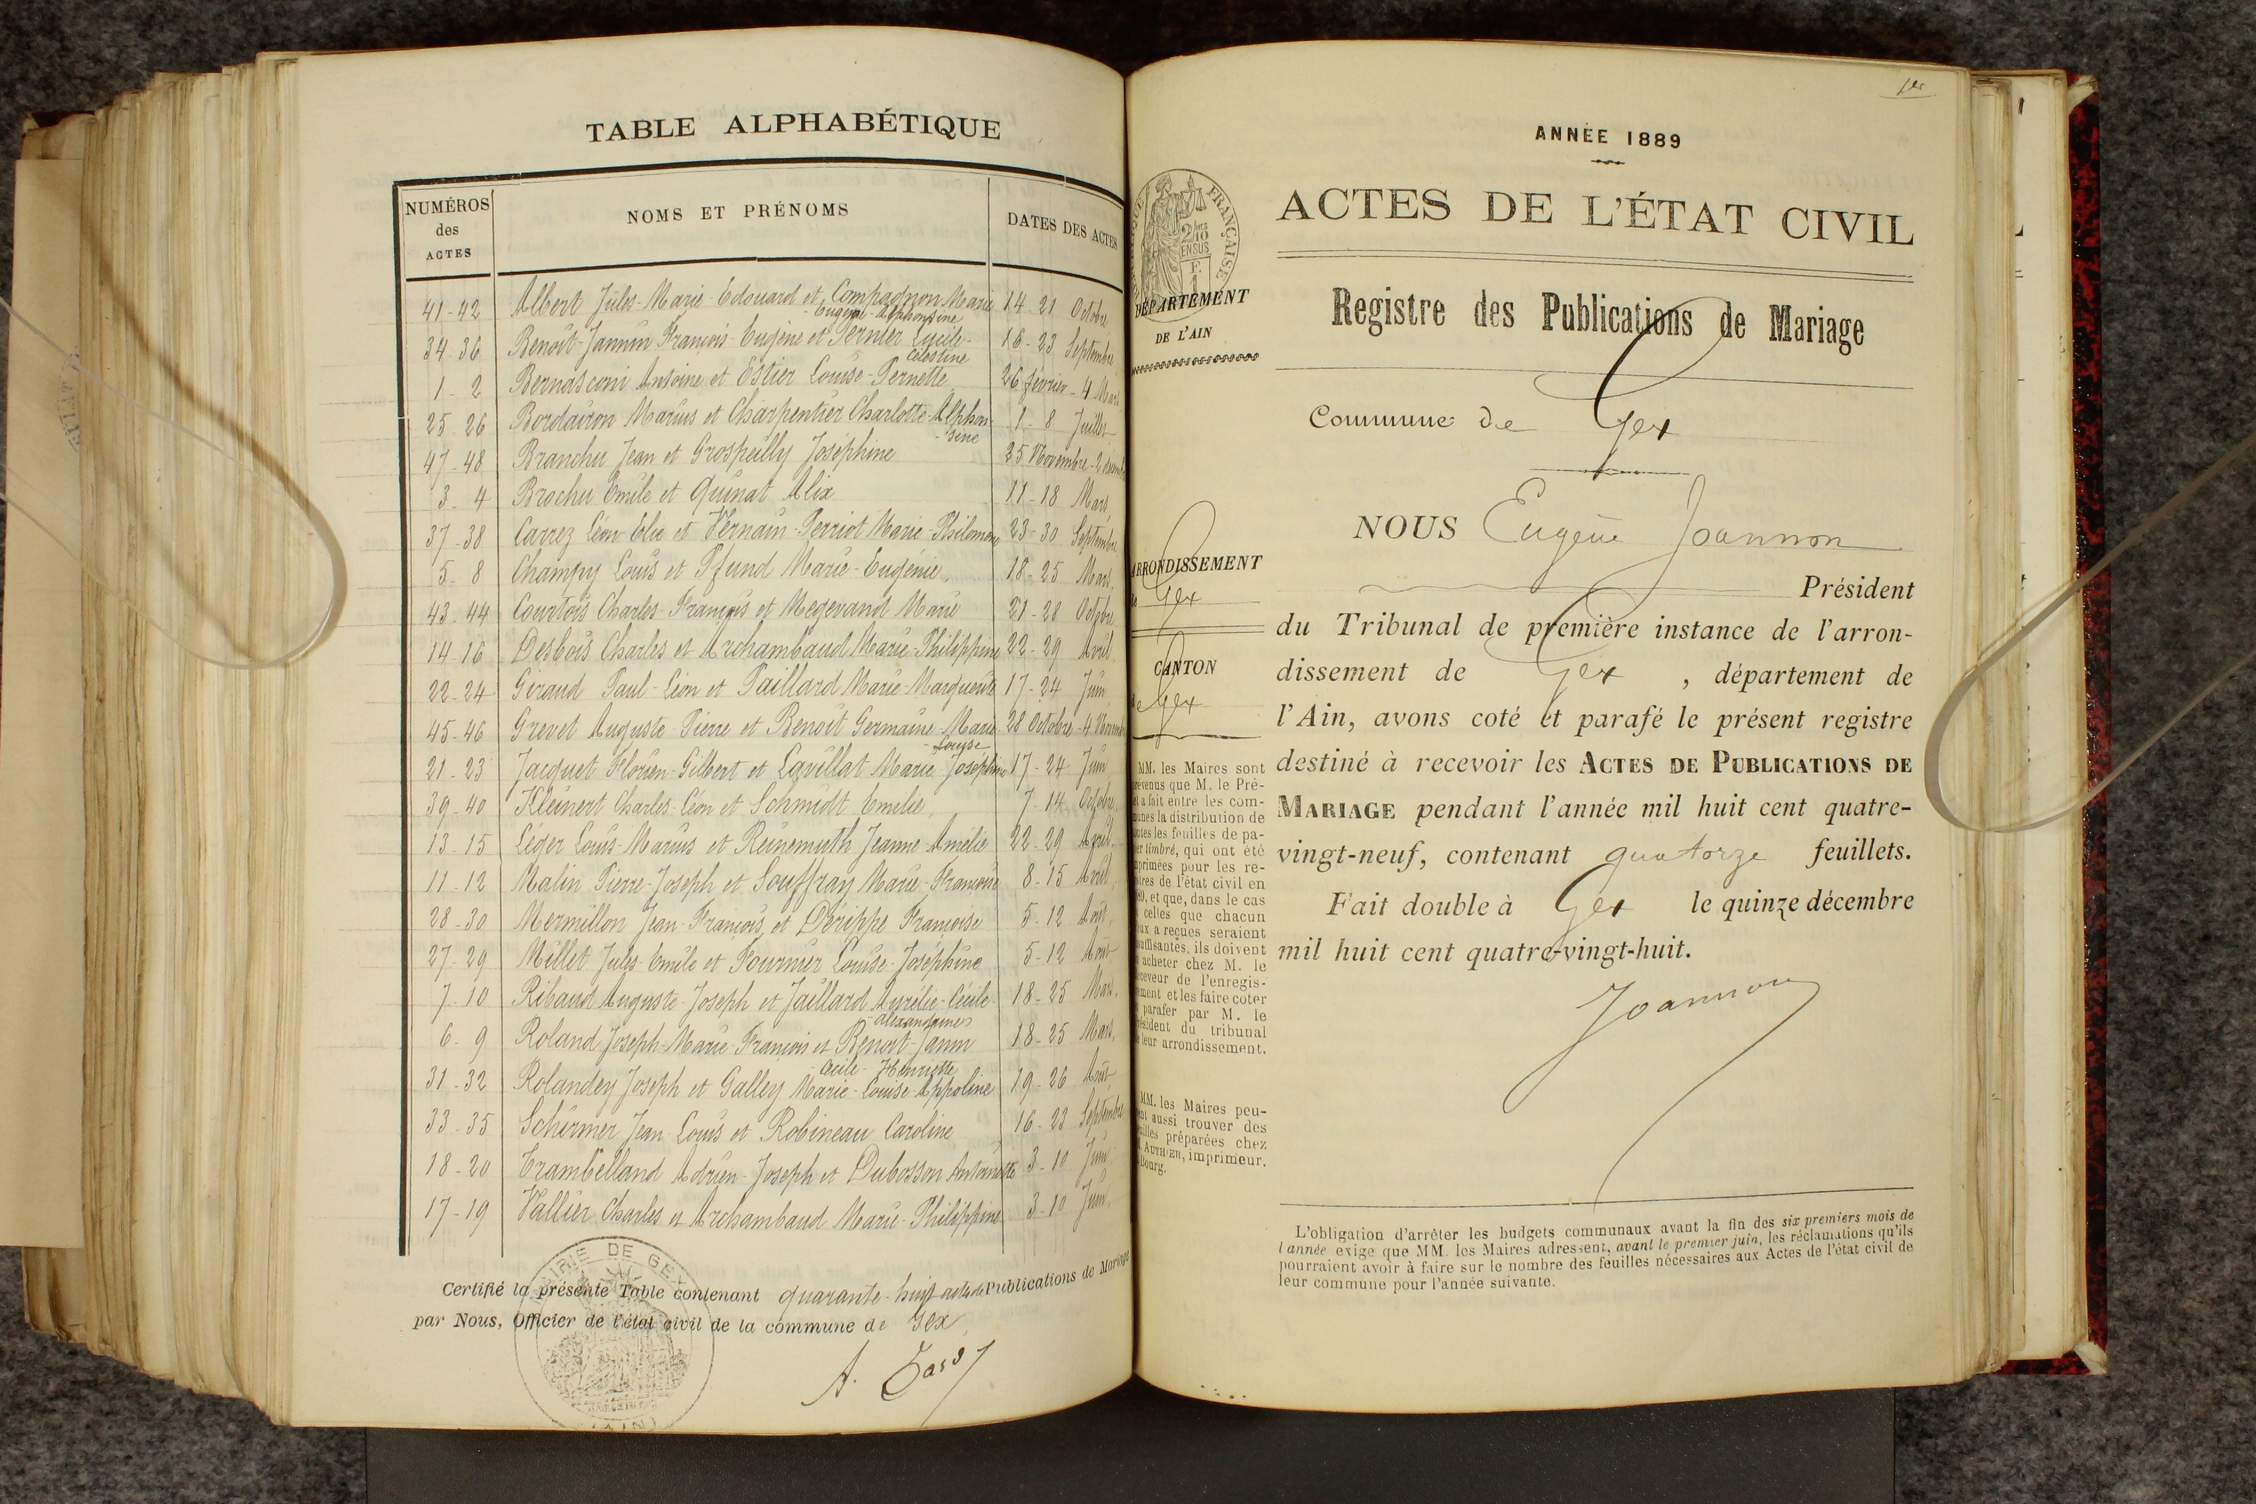 TABLE ALPHABÉTIQUE
NUMÉROS des ACTES
NOMS ET PRÉNOMS
DATES DES ACTES
41-42 Albert Jules-Marie-Edouard et Compagnon Marie 14-21 Octobre
-Eugénie-Alphonsine
34-36 Benoit-Jannin François-Eugène et Pernier Lucile- 16-23 Septembre
Célestine
1-2 Bernasconi Antoine et Estier Louise-Pernette 26 février-4 Mars
25-26 Bordairon Marius et Charpentier Charlotte-Alphon- 1-8 Juillet
-sine
47-48 Branchu Jean et Grospeilly Joséphine 25 Novembre-2
3-4 Brochu Emile et Quinat Alix 11-18 Mars
37-38 Carrez Léon-Elie et Vernain-Perriot Marie-Philomène 23-30 Septembre
5-8 Champy Louis et Pfund Marie-Eugénie 18-25 Mars
43-44 Courtois Charles-François et Megevand Marie 21-28 Octobre
14-16 Desbois Charles et Archambaud Marie-Philippine 22-29 Avril
22-24 Giraud Paul-Léon et Paillard Marie-Marguerite 17-24 Juin
45-46 Grevet Auguste-Pierre et Benoit Germaine-Marie- 28 Octobre-4 Novembre
-Louise
21-23 Jacquet Florien-Gilbert et Lavillat Marie-Joséphine 17-24 Juin
39-40 Kleinert Charles-Léon et Schmidt Emelie 7-14 Octobre
13-15 Léger Louis-Marius et Reinemuth Jeanne-Amélie 22-29 Avril
11-12 Malin Pierre-Joseph et Souffray Marie-Françoise 8-15 Avril
28-30 Mermillon Jean-François et Dérippe Françoise 5-12 Août
27-29 Millet Jules-Emile et Fournier Louise-Joséphine 5-12 Août
7-10 Ribaud Auguste-Joseph et Jaillard Aurélie-Cécile- 18-25 Mars
-Alexandrine
6-9 Roland Joseph-Marie-François et Benoit-Janin 18-25 Mars
-Cécile-Henriette
31-32 Rolandey Joseph et Galley Marie-Louise-Appoline 19-26 Août
33-35 Schirmer Jean-Louis et Robineau Caroline 16-23 Septembre
18-20 Trambelland Adrien-Joseph et Dubosson Antoinette 3-10 Juin
17-19 Vallier Charles et Archambaud Marie-Philippine 3-10 Juin
Certifié la présente Table contenant quarante-huit actes de Publications de Mariage
par Nous, Officier de l'état civil de la commune de Gex
MAIRIE DE GEX
(AIN)
1er
ANNÉE 1889
ACTES DE L'ÉTAT CIVIL
Registre des Publications de Mariage
Commune de Gex
FRANÇAISE
2/10
EN SUS
DÉPARTEMENT
DE L'AIN
ARRONDISSEMENT
de Gex
CANTON
de Gex
MM. les Maires sont
prévenus que M. le Pré-
fet a fait entre les com-
munes la distribution de
toutes les feuilles de pa-
pier timbré, qui ont été
imprimées pour les re-
gistres de l'état civil en
et que, dans le cas
où celles que chacun
d'eux a reçues seraient
insuffisantes, ils doivent
en acheter chez M. le
receveur de l'enregis-
trement et les faire coter
et parafer par M. le
président du tribunal
de leur arrondissement.
MM. les Maires peu-
vent aussi trouver des
feuilles préparées chez
M. AUTHIER, imprimeur,
à Bourg.
NOUS Eugène Joannon
Président
du Tribunal de première instance de l'arron-
dissement de Gex, département de
l'Ain, avons coté et parafé le présent registre
destiné à recevoir les ACTES DE PUBLICATIONS DE
MARIAGE pendant l'année mil huit cent quatre-
vingt-neuf, contenant quatorze feuillets.
Fait double à Gex le quinze décembre
mil huit cent quatre-vingt-huit.
Joannon
L'obligation d'arrêter les budgets communaux avant la fin des six premiers mois de
l'année exige que MM. les Maires adressent, avant le premier juin, les réclamations qu'ils
pourraient avoir à faire sur le nombre des feuilles nécessaires aux Actes de l'état civil de
leur commune pour l'année suivante.